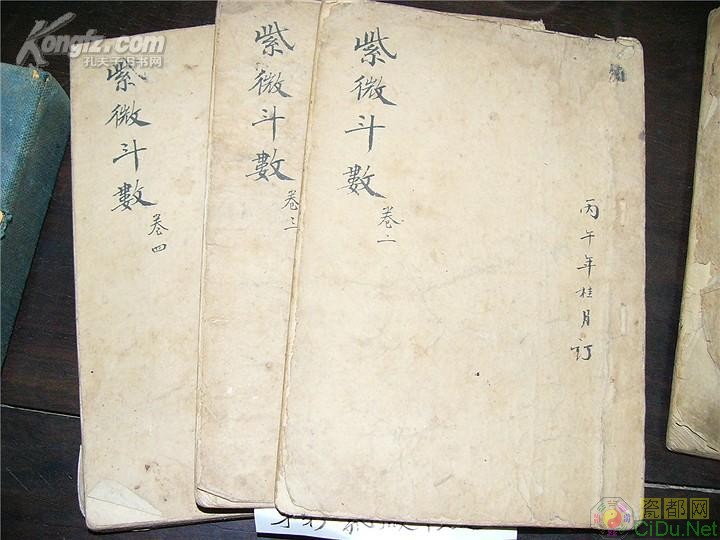 Kongfz.com
孔夫子旧书网
紫微斗數
卷四
紫微斗數
卷三
紫微斗數
卷二
丙午年桂月訂
瓷都网
CiDu.Net